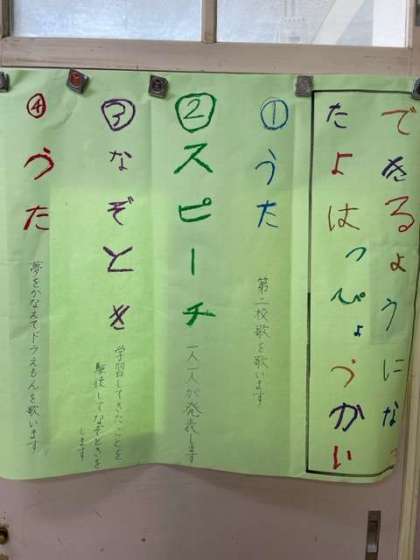 できるようになっ
たよはっぴょうかい
①うた
第二校歌を歌います
②スピーチ
一人一人が発表します
③なぞとき
学習してきたことを
駆使してなぞときを
します
④うた
夢をかなえてドラえもんを歌います